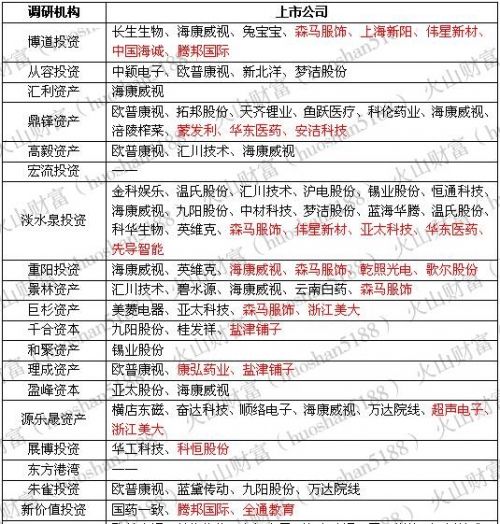 调研机构 上市公司
博道投资 长生生物、海康威视、兔宝宝、森马服饰、上海新阳、伟星新材、
中国海诚、腾邦国际
从容投资 中颖电子、欧普康视、新北洋、梦洁股份
汇利资产 海康威视
鼎锋资产 欧普康视、拓邦股份、天齐锂业、鱼跃医疗、科伦药业、海康威视、
涪陵榨菜、蒙发利、华东医药、安洁科技
高毅资产 欧普康视、汇川技术、海康威视
宏流投资 ——
淡水泉投资 金科娱乐、温氏股份、汇川技术、沪电股份、锡业股份、恒通科技、
海康威视、九阳股份、中材科技、梦洁股份、蓝海华腾、温氏股份、
科华生物、英维克、森马服饰、伟星新材、亚太科技、华东医药、
先导智能
重阳投资 海康威视、英维克、海康威视、森马服饰、乾照光电、歌尔股份
景林资产 汇川技术、碧水源、海康威视、云南白药、森马服饰
巨杉资产 美菱电器、亚太科技、森马服饰、浙江美大
千合资本 九阳股份、桂发祥、盐津铺子
和聚资产 锡业股份
理成资产 欧普康视、康弘药业、盐津铺子
盈峰资本 亚太股份、海康威视
源乐晟资产 横店东磁、奋达科技、顺络电子、海康威视、万达院线、超声电子、
浙江美大
展博投资 华工科技、科恒股份
东方港湾 ——
朱雀投资 欧普康视、蓝黛传动、九阳股份、万达院线
新价值投资 国药一致、腾邦国际、全通教育
火山财富(huoshan5188)